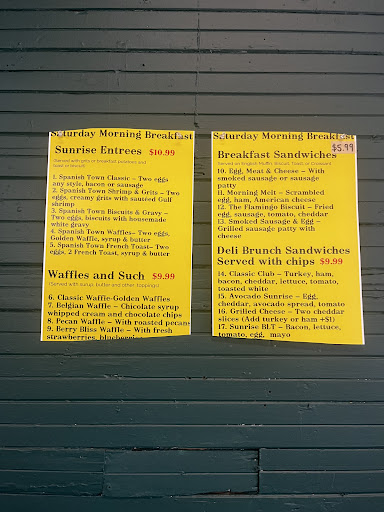 Saturday Morning Breakfast
Sunrise Entrees $10.99
(Served with grits or breakfast potatoes and
toast or biscuit)
1. Spanish Town Classic – Two eggs
any style, bacon or sausage
2. Spanish Town Shrimp & Grits – Two
eggs, creamy grits with sautéed Gulf
shrimp
3. Spanish Town Biscuits & Gravy –
Two eggs, biscuits with housemade
white gravy
4. Spanish Town Waffles– Two eggs,
Golden Waffle, syrup & butter
5. Spanish Town French Toast– Two
eggs, 2 French Toast, syrup & butter
Waffles and Such $9.99
(Served with syrup, butter and other toppings)
6. Classic Waffle-Golden Waffles
7. Belgian Waffle – Chicolate syrup
whipped cream and chocolate chips
8. Pecan Waffle – With roasted pecans
9. Berry Bliss Waffle – With fresh
strawberries, blueberries
Saturday Morning Breakfast
$5.99
Breakfast Sandwiches
(Served on English Muffin, Biscuit, Toast, or Croissant)
10. Egg, Meat & Cheese – With
smoked sausage or sausage
patty
11. Morning Melt – Scrambled
egg, ham, American cheese
12. The Flamingo Biscuit – Fried
egg, sausage, tomato, cheddar
13. Smoked Sausage & Egg –
Grilled sausage patty with
cheese
Deli Brunch Sandwiches
Served with chips $9.99
14. Classic Club – Turkey, ham,
bacon, cheddar, lettuce, tomato,
toasted white
15. Avocado Sunrise – Egg,
cheddar, avocado spread, tomato
16. Grilled Cheese – Two cheddar
slices (Add turkey or ham +$1)
17. Sunrise BLT – Bacon, lettuce,
tomato, egg, mayo